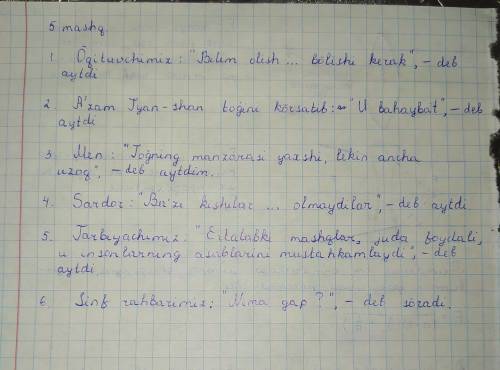 5 mashq.
1. Õqituvchimiz: "Bilim olish ... bõlishi kerak", - deb
aytdi
2. A'zam Tyan-shan toğini kõrsatib: - "U bahaybat", - deb
aytdi
3. Men: "Toğning manzarasi yaxshi, lekin ancha
uzoq", - deb aytdim.
4. Sardor: "Ba'zi kishilar ... olmaydilar", - deb aytdi
5. Tarbiyachimiz: "Ertalabki mashqlar, juda foydali,
u insonlarning asablarini mustahkamlaydi", - deb
aytdi
6. Sinf rahbarimiz: "Nima gap?", - deb sõradi.